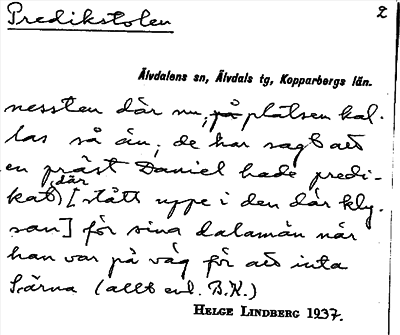 Predikstolen
2
Älvdalens sn, Älvdals tg, Kopparbergs län.
nessten där nu, på platsen kal-
las så än, de har sagt att
en präst Daniel hade predi-
kat där [stått uppe i den där kly-
san] för sina dalamän när
han var på väg för att inta
Särna (allt enl. B.K.)
HELGE LINDBERG 1937.